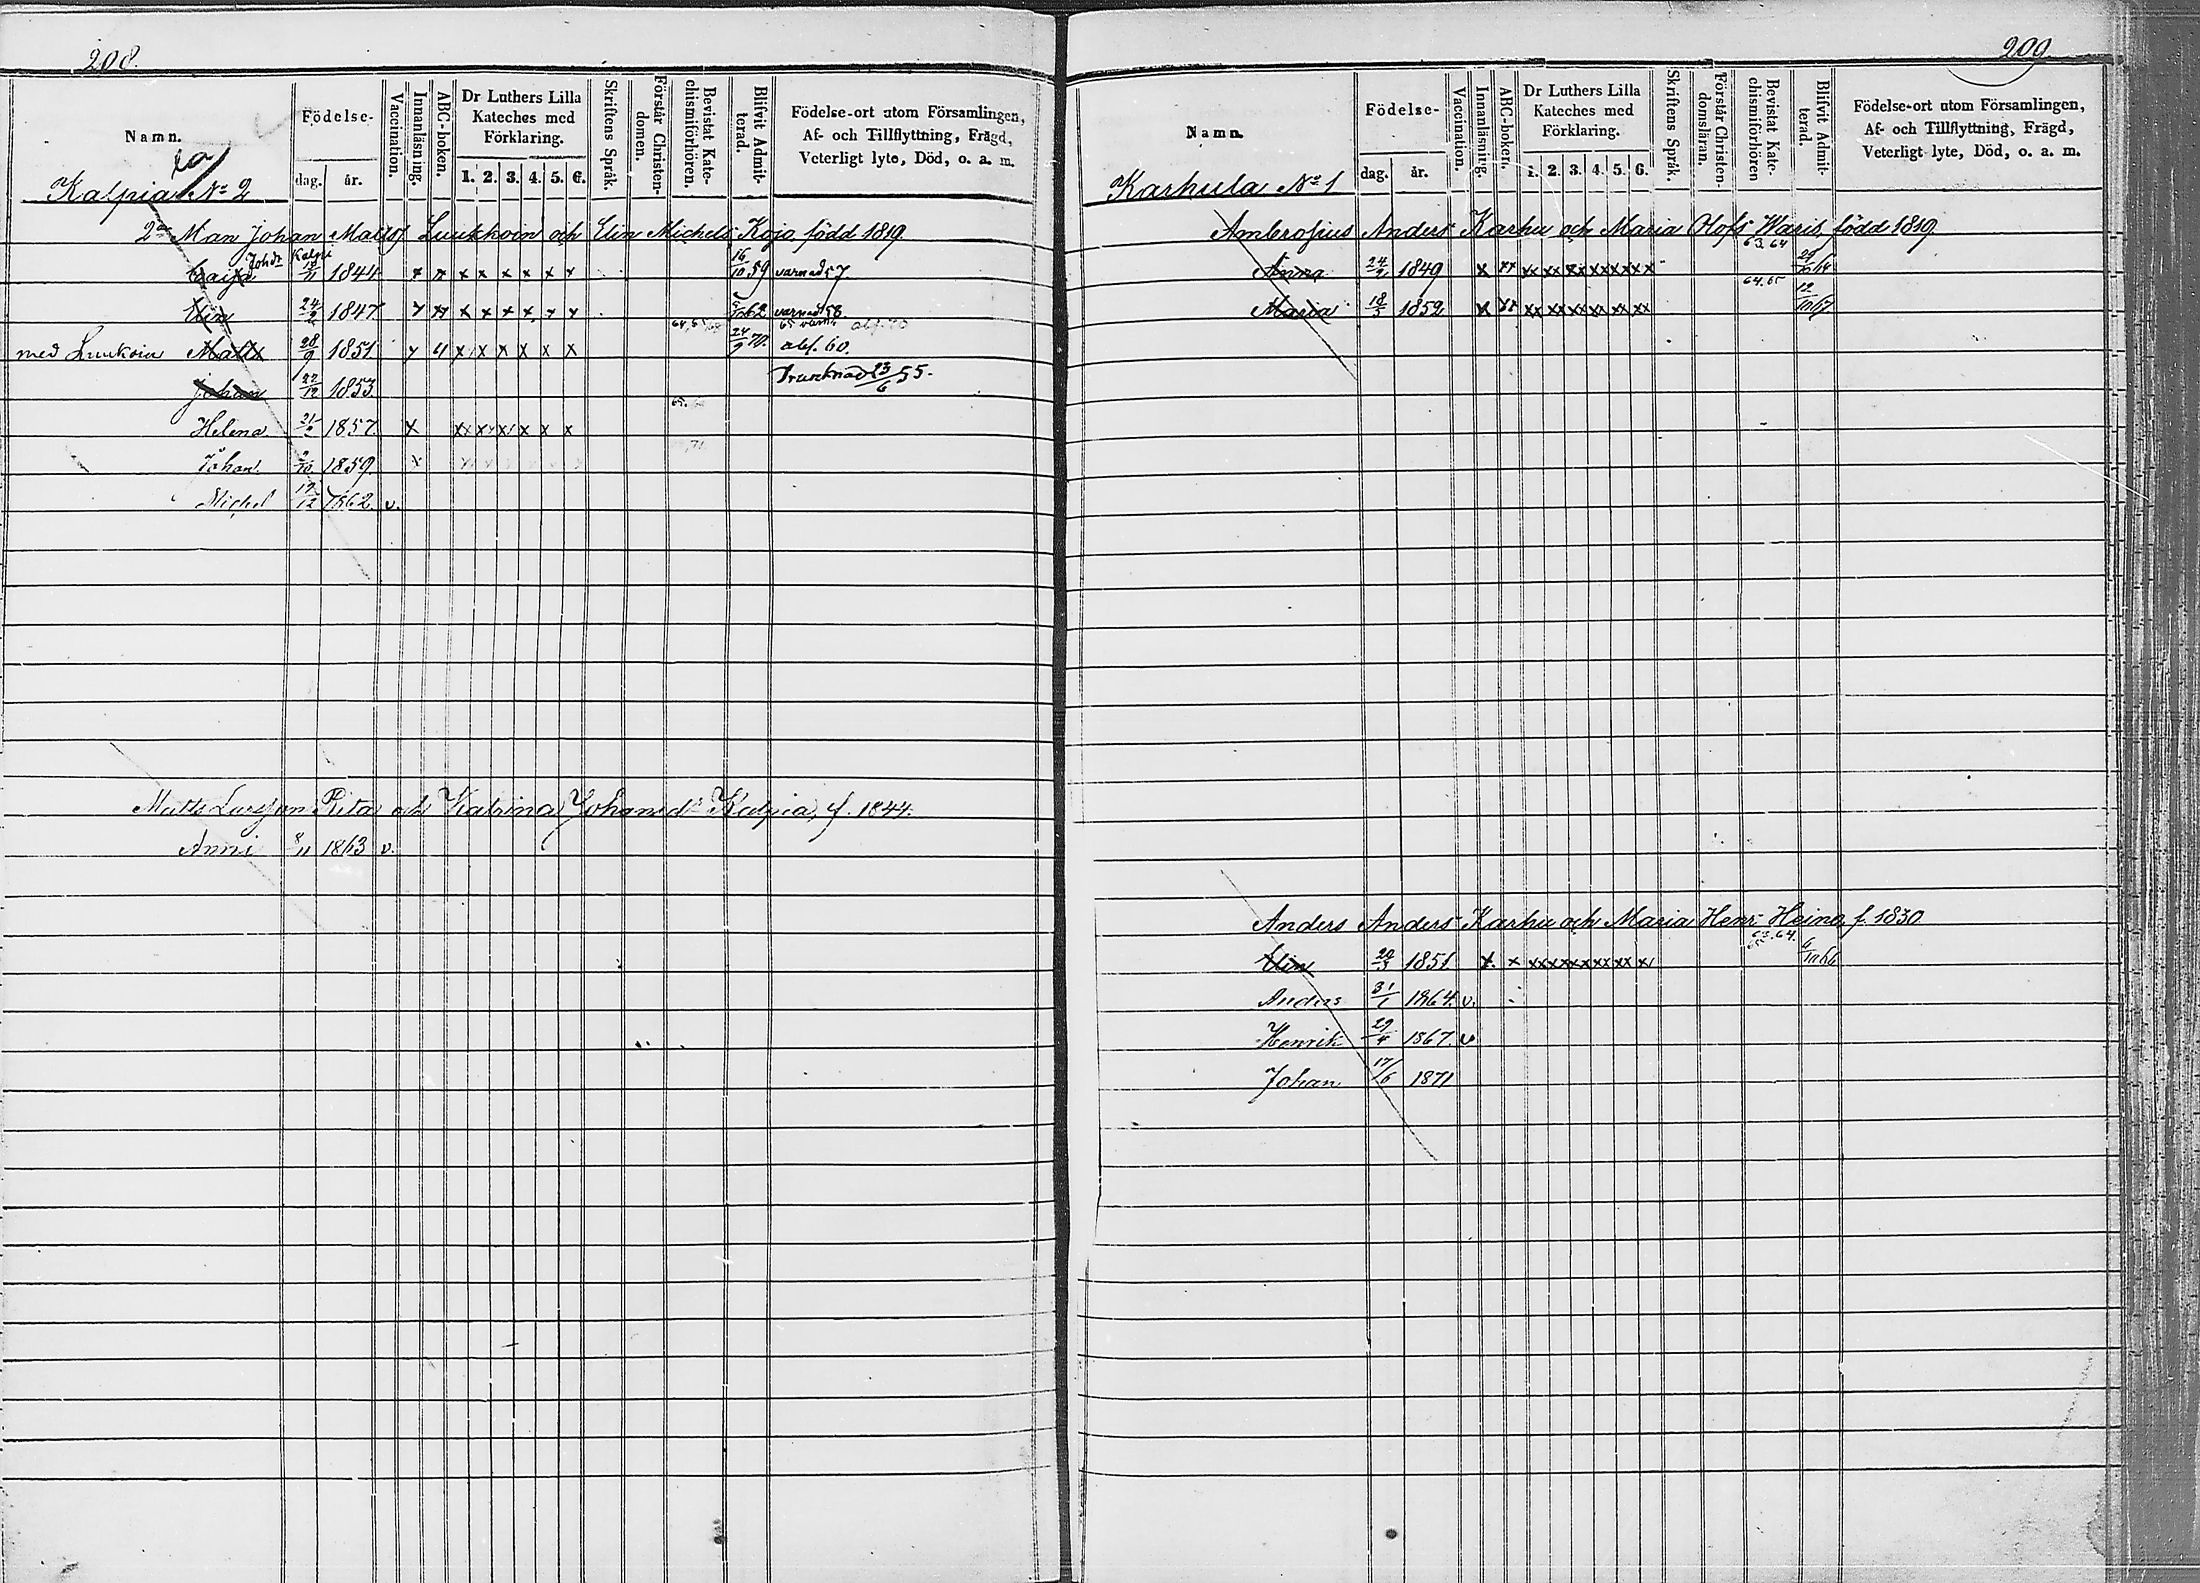 208.
Namn.
Födelse-
dag. år.
Vaccination.
Innanläsning.
ABC-boken.
Dr Luthers Lilla
Kateches med
Förklaring.
1. 2. 3. 4. 5. 6.
Skriftens Språk.
Förstår Christen-
domen.
Bevistat Kate-
chismiförhören.
Blifvit Admit-
terad.
Födelse-ort utom Församlingen,
Af- och Tillflyttning, Frägd,
Veterligt lyte, Död, o. a. m.
la
Kalpia No 2
2dra Man Johan Matts Luukkoin och Elin Michels Kojo, född 1819.
Johdr Kalpi
Caisa 1844 x x x x x x x x 16/10 59 varnad 57
Elin 24/2 1847 x x x x x x x x 62 varnad 58
med Luukoin Matts 28/9 1851 x x x x x x 24/9 70 abs. 60.
Johan 22/12 1853. Drunknad 23/6 55.
65.
Helena 21/2 1857 x x x x x x x
71
Johan 2/10 1859. x
Michel 17/12 1862. v.
Matts Larsson Rita och Katrina Johansdr Kalpia, f. 1844.
Anni 8/11 1863 v.
209.
Namn.
Födelse-
dag. år.
Vaccination.
Innanläsning.
ABC-boken.
Dr Luthers Lilla
Kateches med
Förklaring.
1. 2. 3. 4. 5. 6.
Skriftens Språk.
Förstår Christen-
domsläran.
Bevistat Kate-
chismiförhören
Blifvit Admit-
terad.
Födelse-ort utom Församlingen,
Af- och Tillflyttning, Frägd,
Veterligt lyte, Död, o. a. m.
Karhula No 1
Ambrosius Anders Karhu och Maria Olofs Waris, född 1819
63.64
Anna 24/2 1849 x xx xx xx xx xx xx xx 29/10 64
64.65
Maria 18/5 1852 x xx xx xx xx xx xx xx 12/10 67
Anders Anders Karhu och Maria Henr. Heino, f. 1830
63.64.
65
Elin 20/3 1851. x x xx xx xx xx xx x 6/10 66
Anders 31/1 1864. v.
Henrik 29/4 1867. v
Johan 17/6 1871